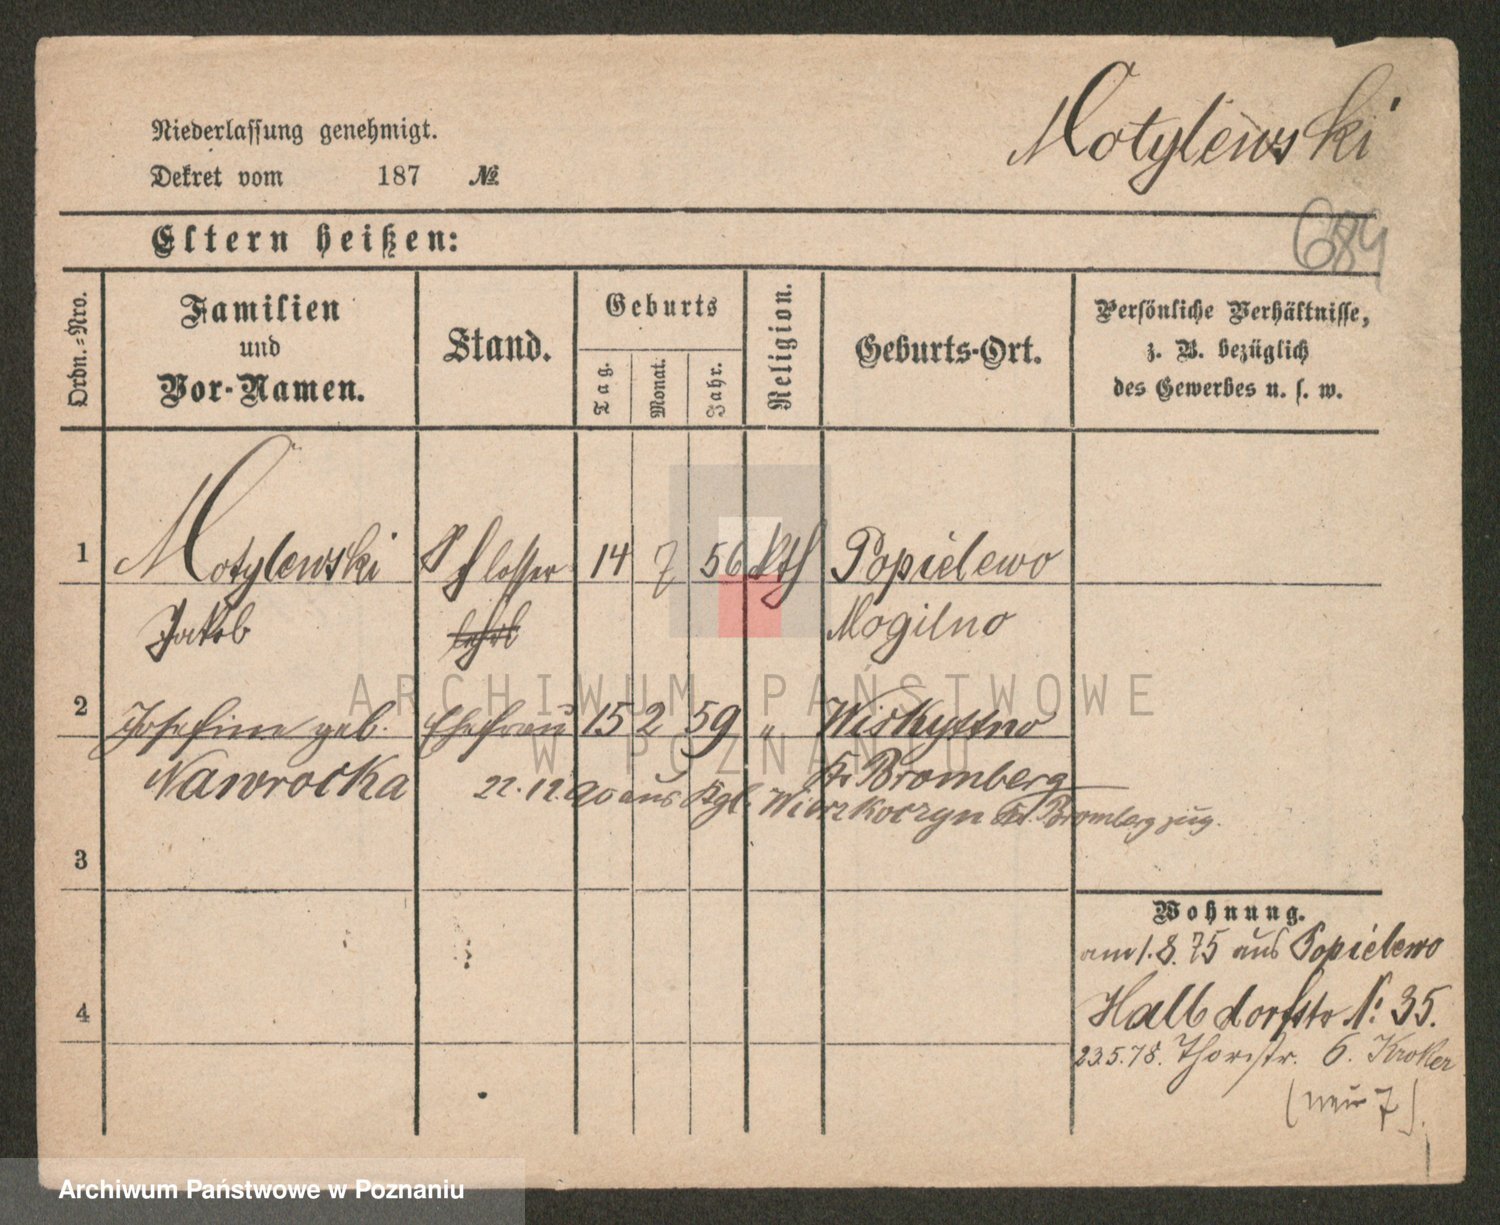 Motylewski
Niederlassung genehmigt.
Dekret vom 187 №
684
Eltern heißen:
Ordn.-Nro.
Familien und Vor-Namen.
Stand.
Geburts
Tag.
Monat.
Jahr.
Religion.
Geburts-Ort.
Persönliche Verhältnisse,
z. B. bezüglich
des Gewerbes u. s. w.
1 Motylewski Schlosser 14 7 56 kth Popielewo
Jakob lehrl Mogilno
2 Josefine geb. Ehefrau 15 2 59 " Wiskyttno
Nawrocka Kr. Bromberg
22.12.90 aus Kgl. Wierzkoczyn Kr. Bromberg zug.
3
Wohnung.
am 1.8.75 aus Popielewo
4 Halbdorfstr N: 35.
23.5.78. Thorstr. 6. Kroker
(neu 7).
ARCHIWUM PAŃSTWOWE
W POZNANIU
Archiwum Państwowe w Poznaniu